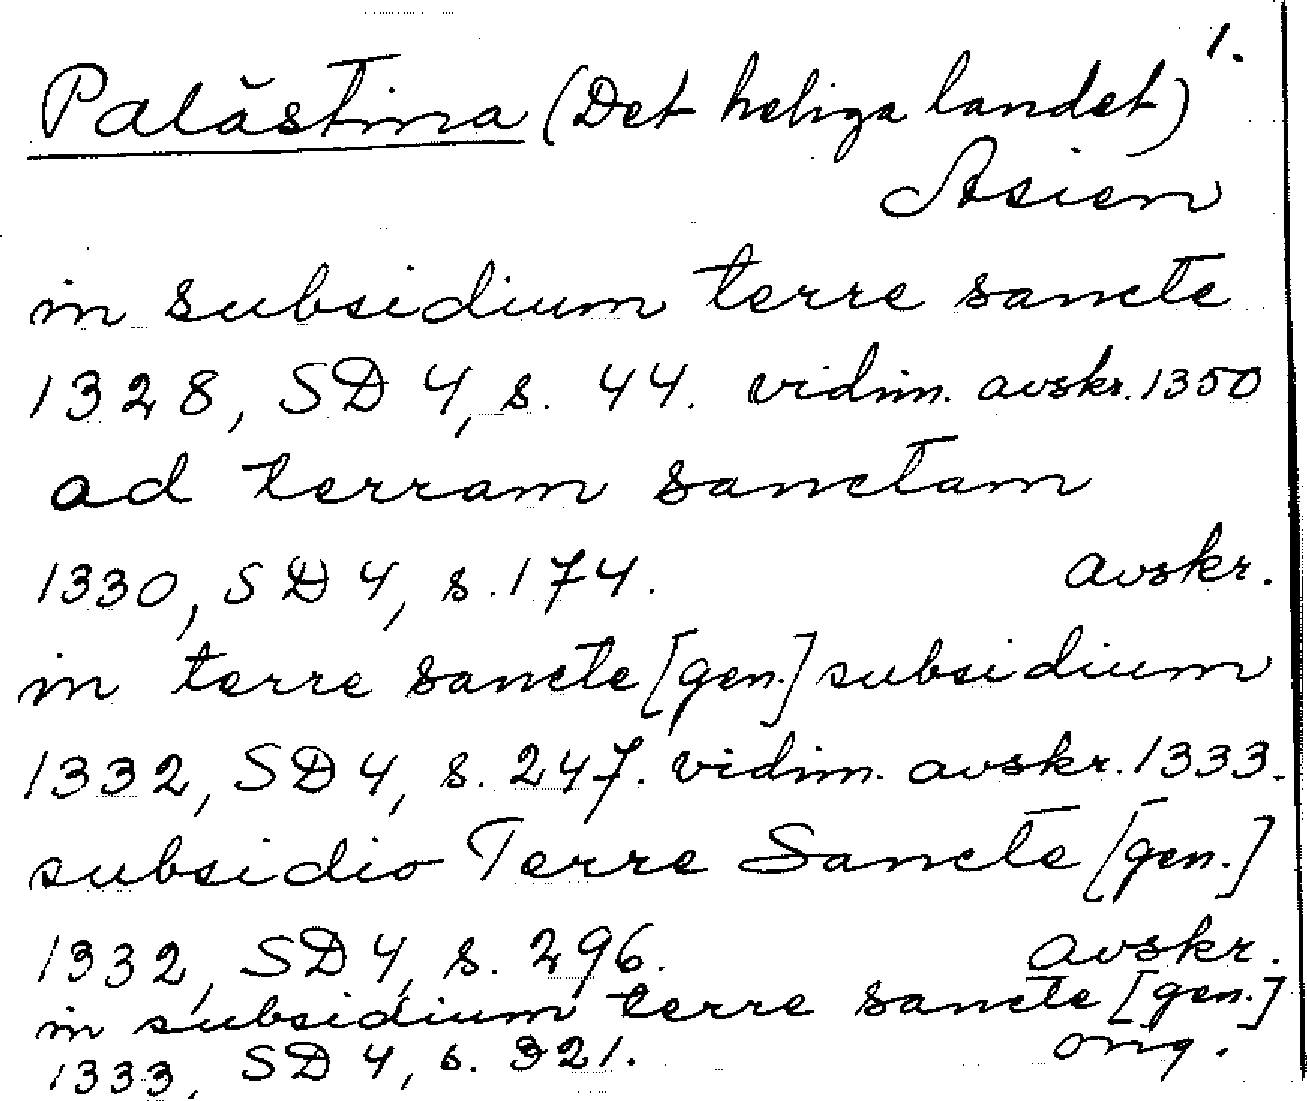 1.
Palästina (Det heliga landet)
Asien
in subsidium terre sancte
1328, SD 4, s. 44. vidim. avskr. 1350
ad terram sanctam
1330, SD 4, s. 174. avskr.
in terre sancte [gen.] subsidium
1332, SD 4, s. 247. vidim. avskr. 1333.
subsidio Terre Sancte [gen.]
1332, SD 4, s. 296. avskr.
in subsidium terre sancte [gen.]
1333, SD 4, s. 321. orig.